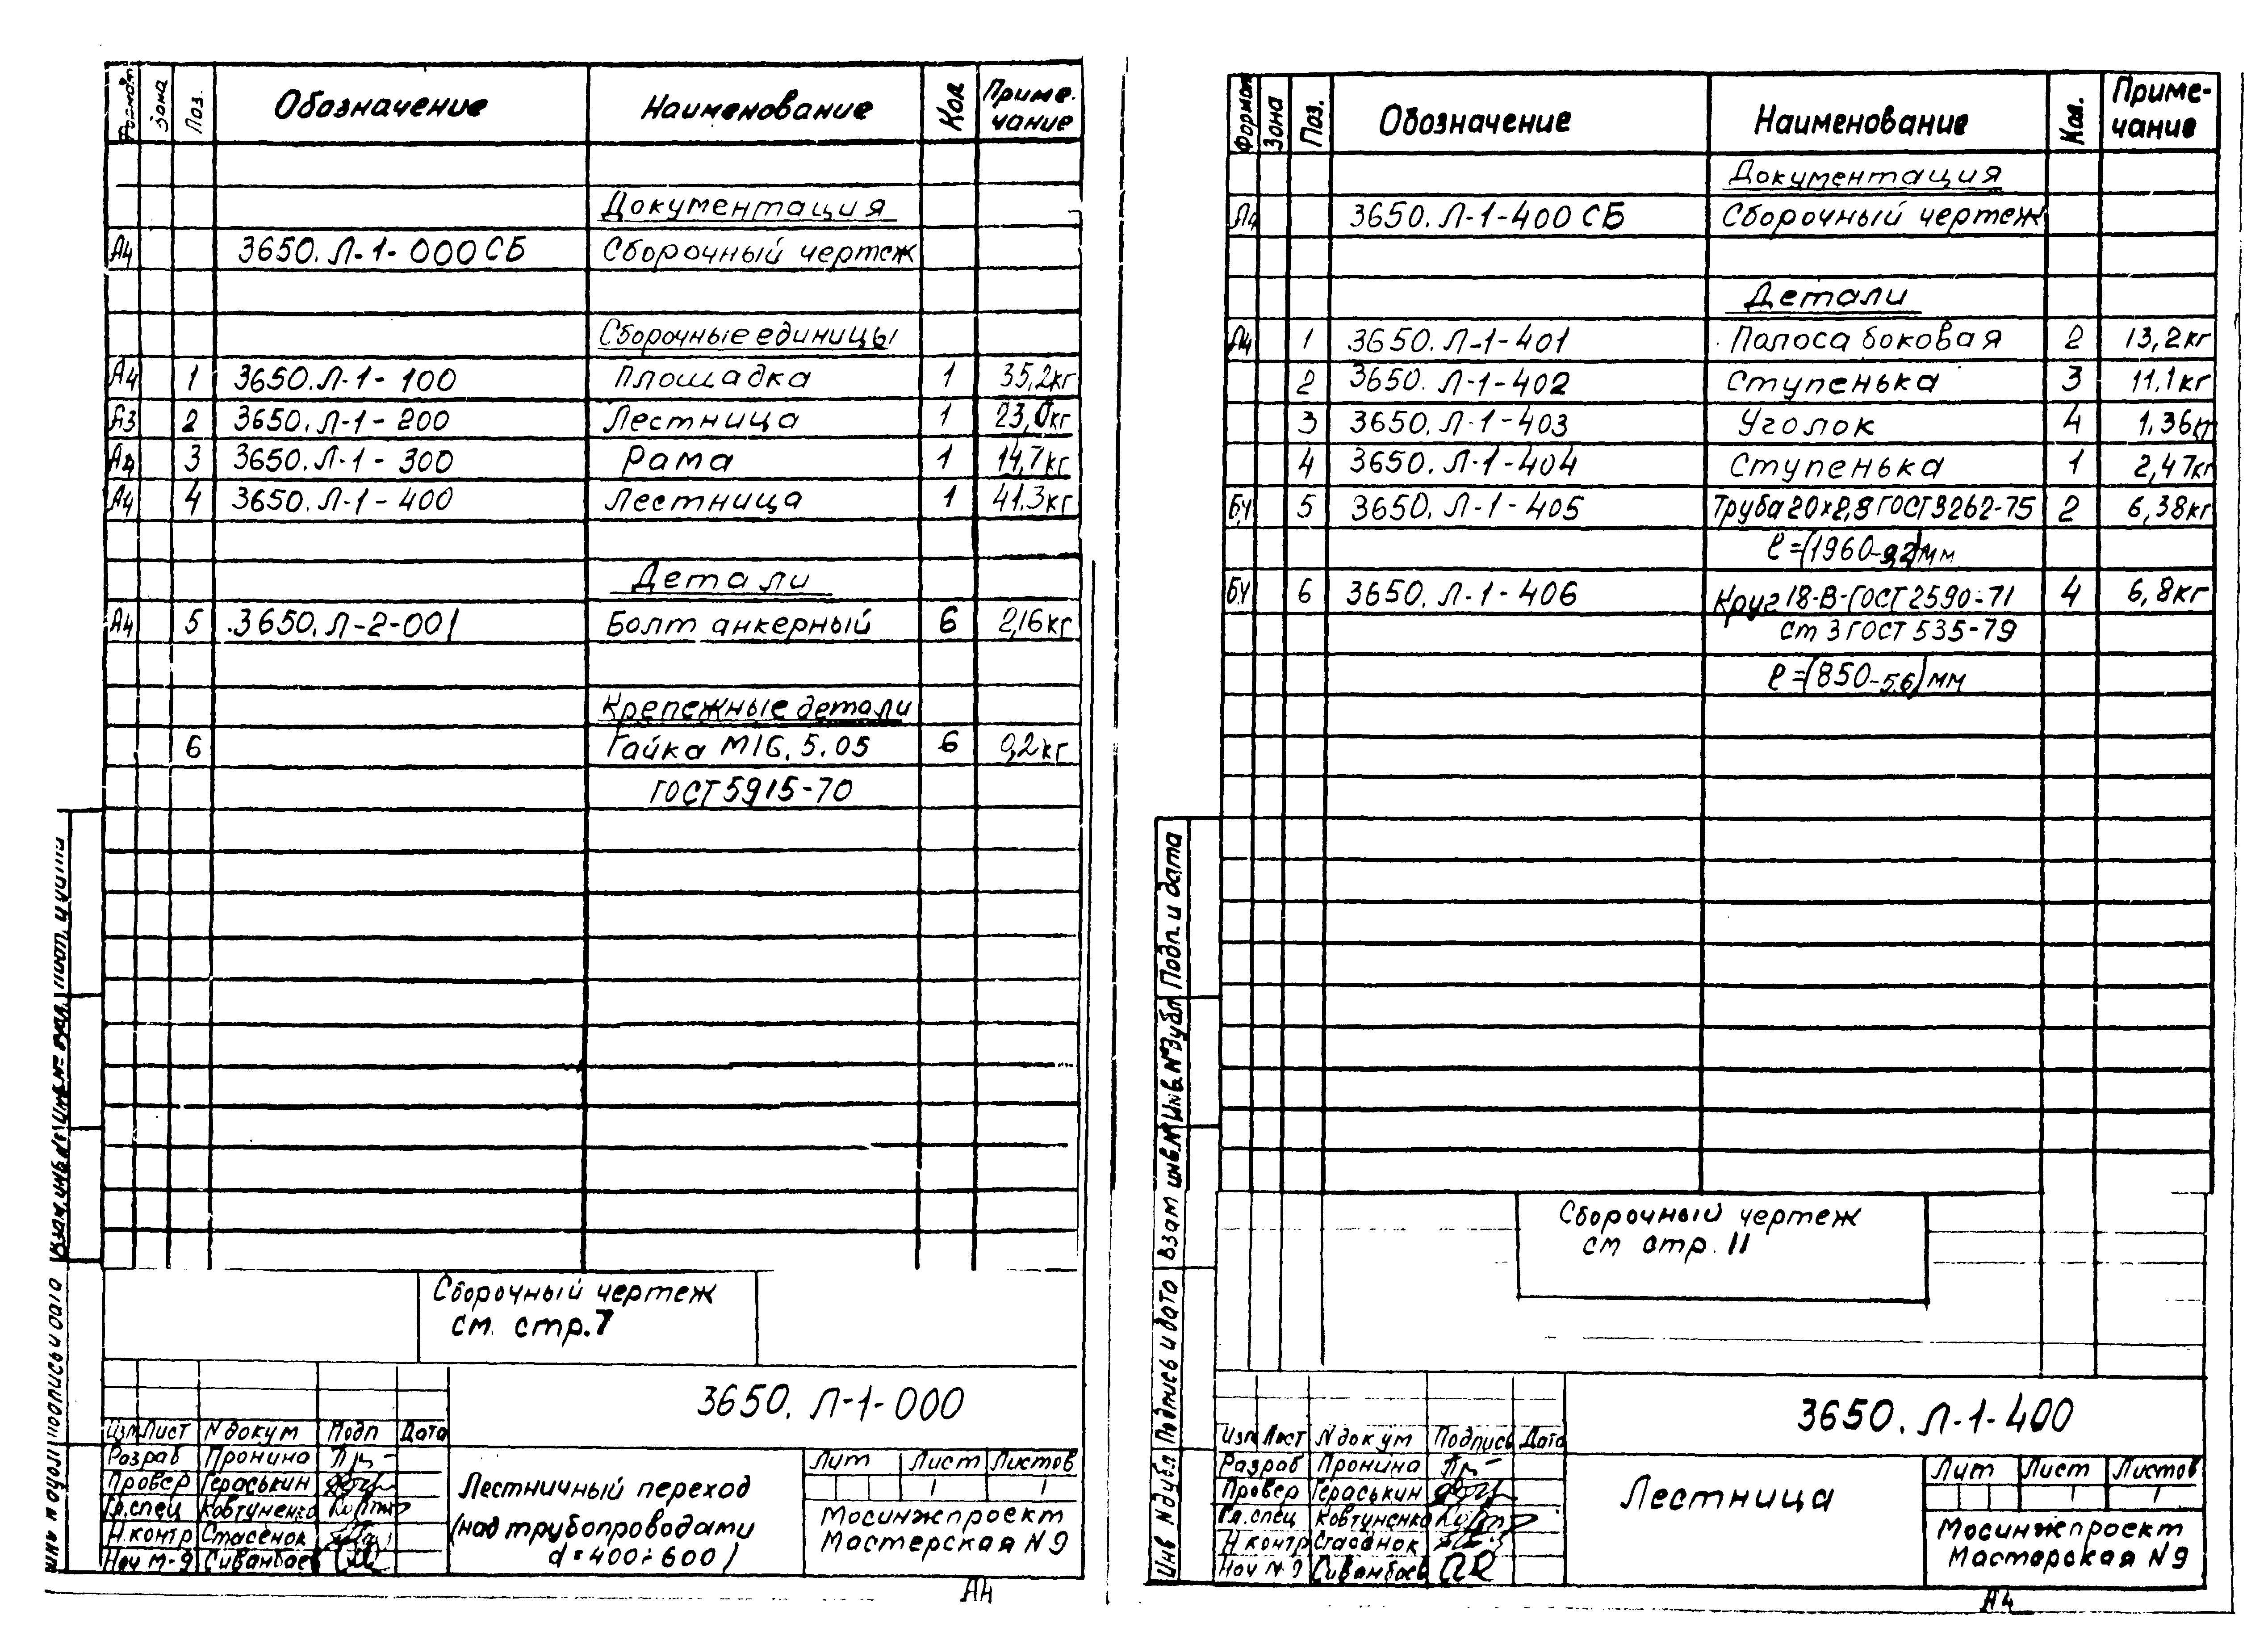 Формат Зона Поз. Обозначение Наименование Кол Приме-чание
Документация
А4 3650.Л-1-000СБ Сборочный чертеж
Сборочные единицы
А4 1 3650.Л-1-100 Площадка 1 35,2кг
А3 2 3650.Л-1-200 Лестница 1 23,0кг
А4 3 3650.Л-1-300 Рама 1 14,7кг
А4 4 3650.Л-1-400 Лестница 1 41.3кг
Детали
А4 5 3650.Л-2-001 Болт анкерный 6 2,16кг
Крепежные детали
6 Гайка М16.5.05 6 0,2кг
ГОСТ 5915-70
Сборочный чертеж
см. стр.7
3650.Л-1-000
Изм Лист N докум Подп Дата
Разраб Пронина
Провер Гераськин
Гл.спец Ковтуненко
Н.контр Стасенок
Нач М-9 Сиванбаев
Лестничный переход
(над трубопроводами
d=400÷600)
Лит Лист Листов
1 1
Мосинжпроект
Мастерская N9
А4
Формат Зона Поз. Обозначение Наименование Кол. Приме-чание
Документация
А4 3650.Л-1-400 СБ Сборочный чертеж
Детали
А4 1 3650.Л-1-401 Полоса боковая 2 13,2кг
2 3650.Л-1-402 Ступенька 3 11.1кг
3 3650.Л-1-403 Уголок 4 1.36кг
4 3650.Л-1-404 Ступенька 1 2,47кг
БЧ 5 3650.Л-1-405 Труба 20×2,8 ГОСТ 3262-75 2 6,38кг
ℓ=(1960-9,2)мм
БЧ 6 3650.Л-1-406 Круг 18-В-ГОСТ 2590-71 4 6,8кг
ст 3 ГОСТ 535-79
ℓ=(850-5.6)мм
Сборочный чертеж
см стр. 11
Инв N дубл. Подпись и дата Взам инв.N Инв.N дубл Подп. и дата
3650.Л-1-400
Изм Лист N докум Подпись Дата
Разраб Пронина
Провер Гераськин
Гл.спец Ковтуненко
Н контр Стасенок
Нач М-9 Сиванбаев
Лестница
Лит Лист Листов
1 1
Мосинжпроект
Мастерская N9
А4